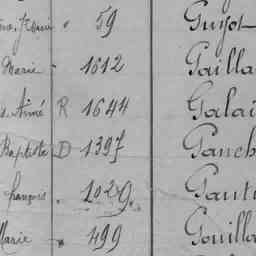 59 Guyot
Marie " 1612 Gailla
s. Aimé R 1644 Galai
Baptiste D 1397 Ganch
françois . 1029. Gauti
Marie " 499 Gouilla